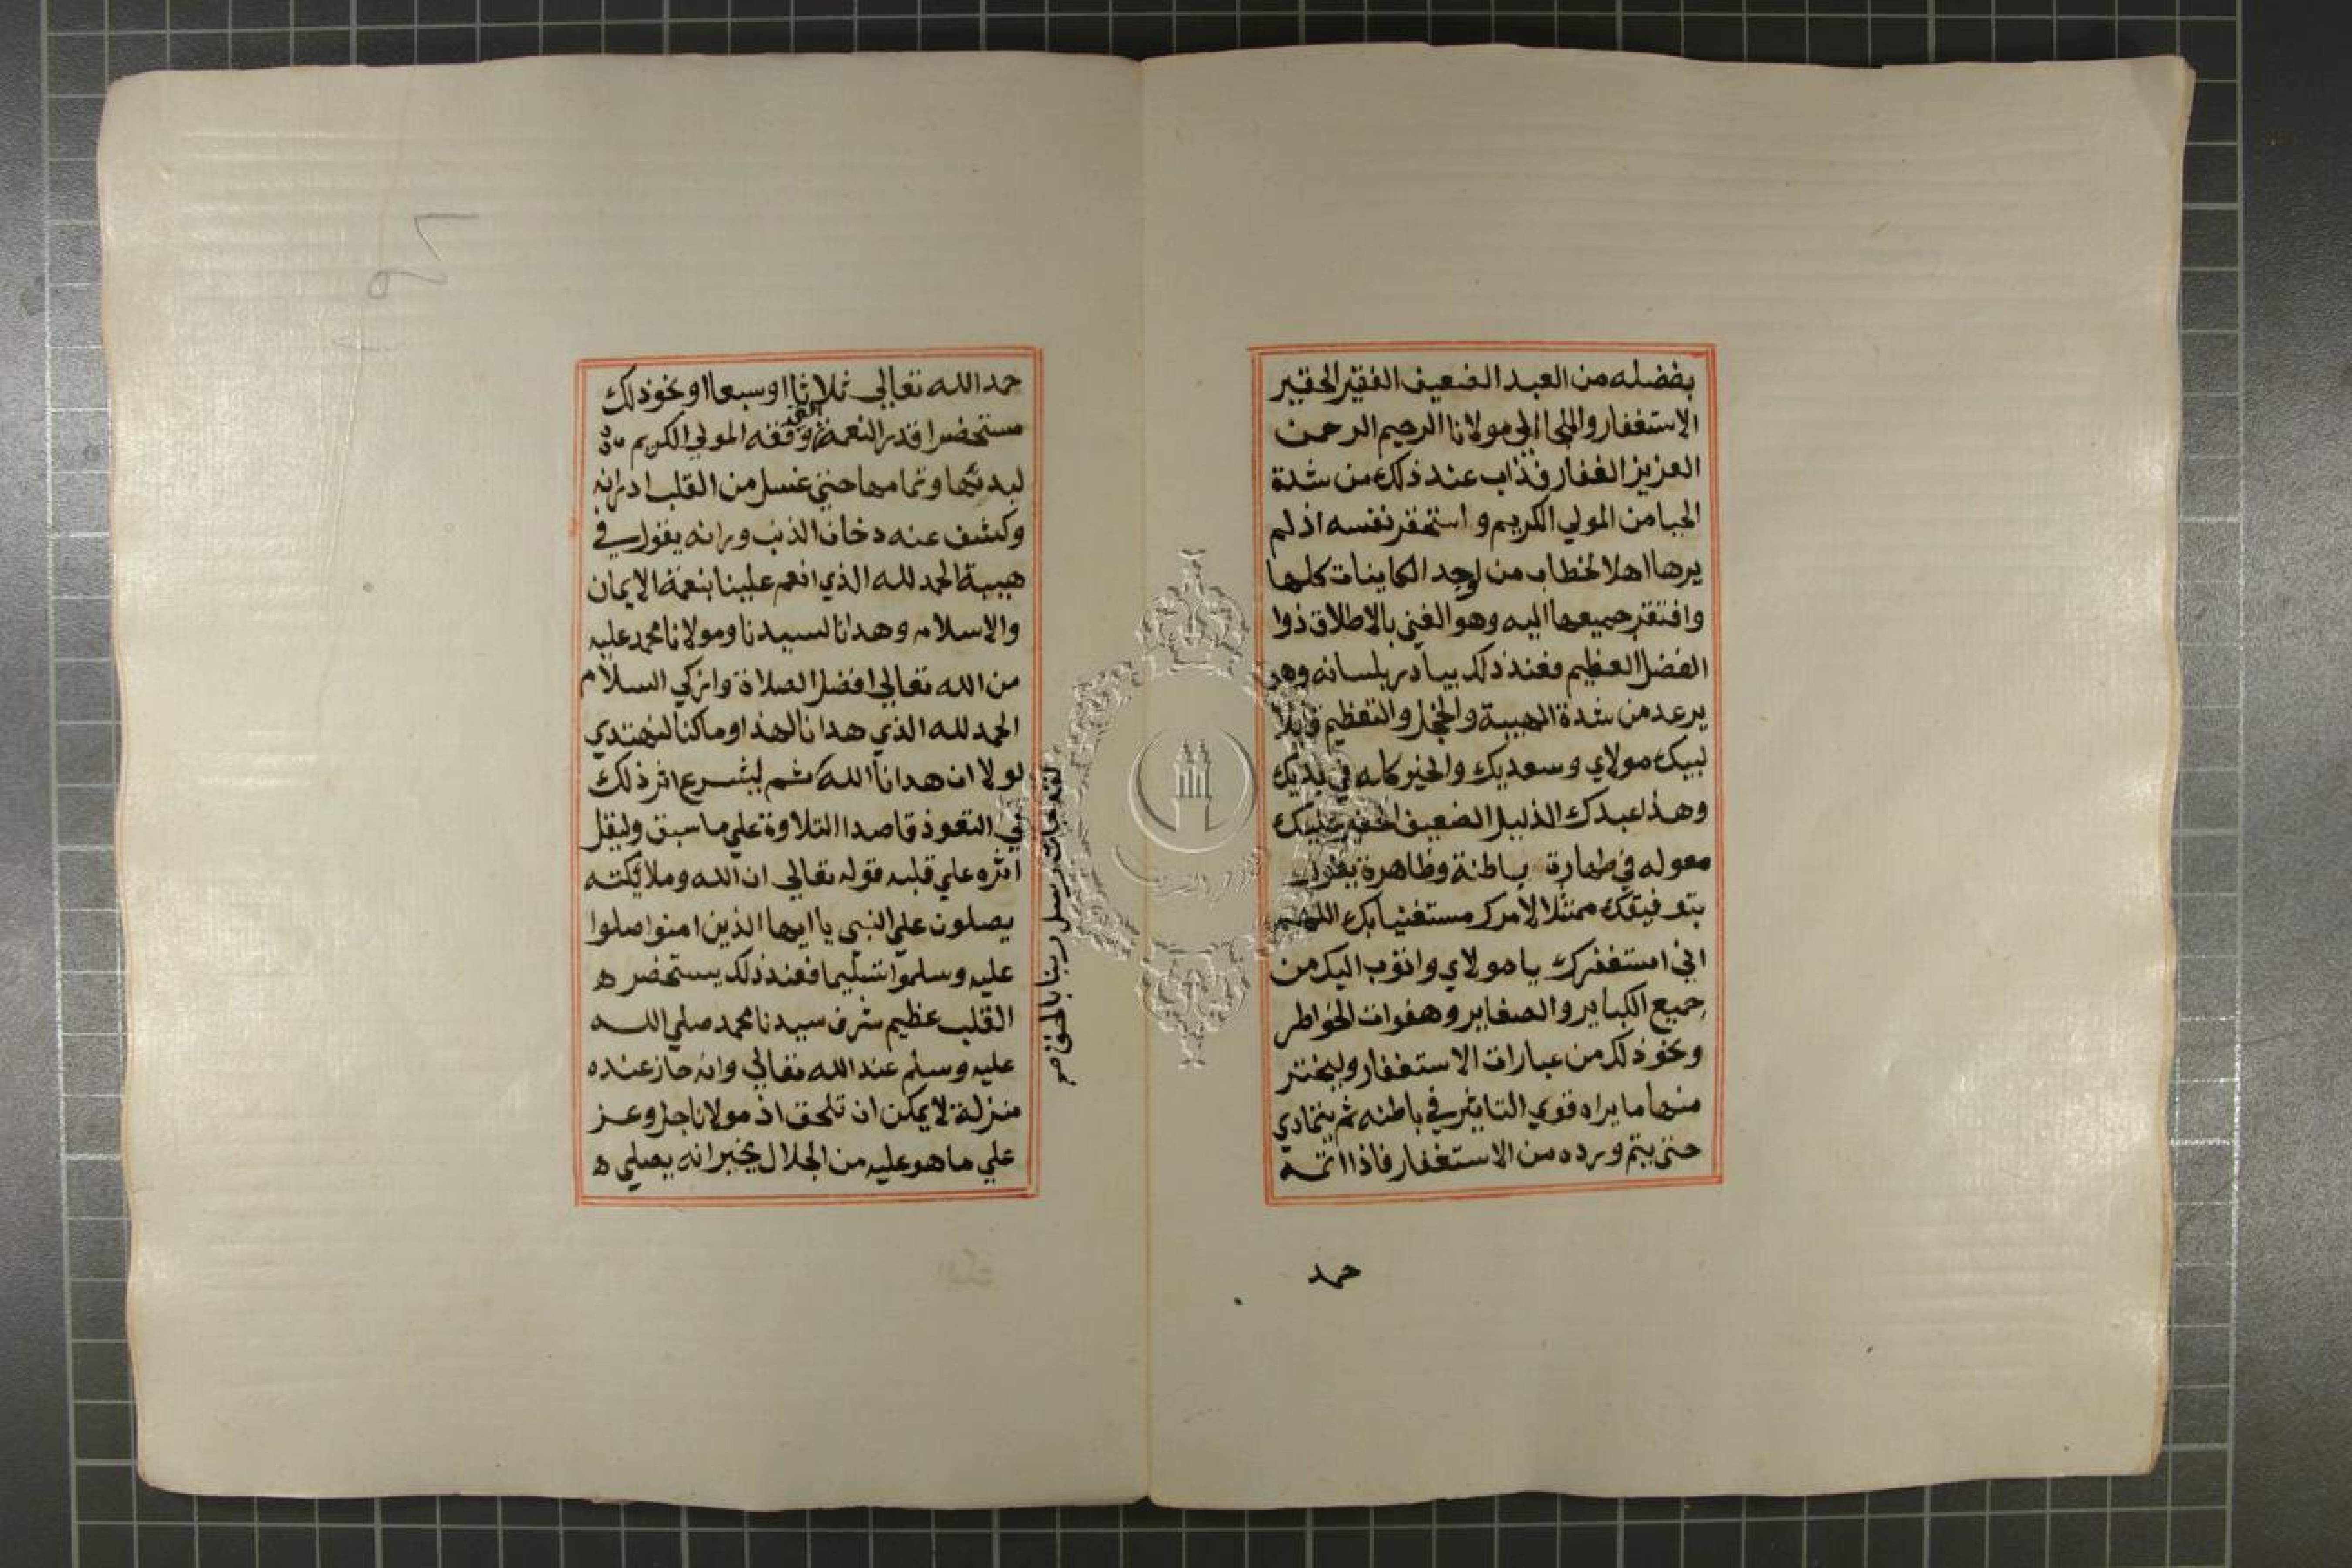 بفضله من العبد الضعيف الفقير الحقير
الاستغفار والملجا الي مولانا الرحيم الرحمن
العزيز الغفار فذاب عند ذلك من شدة
الحيا من المولي الكريم و استحقر نفسه اذ لم
يرها اهلا لخطاب من اوجد الكاينات كلها
وافتقر جميعها اليه وهو الغني بالاطلاق ذوا
الفضل العظيم فعند ذلك يبادر بلسانه وهو
يرعد من شدة الهيبة والخجل والتعظيم قايلا
لبيك مولاي وسعديك والخير كله في يديك
وهذا عبدك الذليل الضعيف الحقير عليك
معوله في طهارة باطنة وظاهرة يقول
بتوفيقك ممتثلا لامرك مستغنيا بك اللهم
اني استغفرك يا مولاي واتوب اليك من
جميع الكباير والصغاير وهفوات الخواطر
ونحو ذلك من عبارات الاستغفار وليختر
منها ما يراه قوي التاثير في باطنه ثم يتمادي
حتى يتم ورده من الاستغفار فاذا اتمه
حمد
حمد الله تعالي ثلاثا او سبعا او نحو ذلك
مستحضرا قدر النعمة وفقه المولي الكريم
لبدئها وتمامها حتي غسل من القلب ادرانه
وكشف عنه دخان الذنب ورانه يقول في
هيبة الحمد لله الذي انعم علينا بنعمة الايمان
والاسلام وهدانا لسيدنا ومولانا محمد عليه
من الله تعالي افضل الصلاة وازكي السلام
الحمد لله الذي هدانا لهذا وما كنا لنهتدي
لولا ان هدانا الله ثم ليشرع اثر ذلك
في التعوذ قاصدا التلاوة علي ما سبق وليقل
اثره علي قلبه قوله تعالي ان الله وملائكته
يصلون علي النبي يا ايها الذين امنوا صلوا
عليه وسلموا تسليما فعند ذلك يستحضر ه
القلب عظيم شرف سيدنا محمد صلي الله
عليه وسلم عند الله تعالي وانه حاز عنده
منزلة لا يمكن ان تلحق اذ مولانا جل وعز
علي ما هو عليه من الجلال يخبر انه يصلي ه
لقد جات رسل ربنا بالحق صح